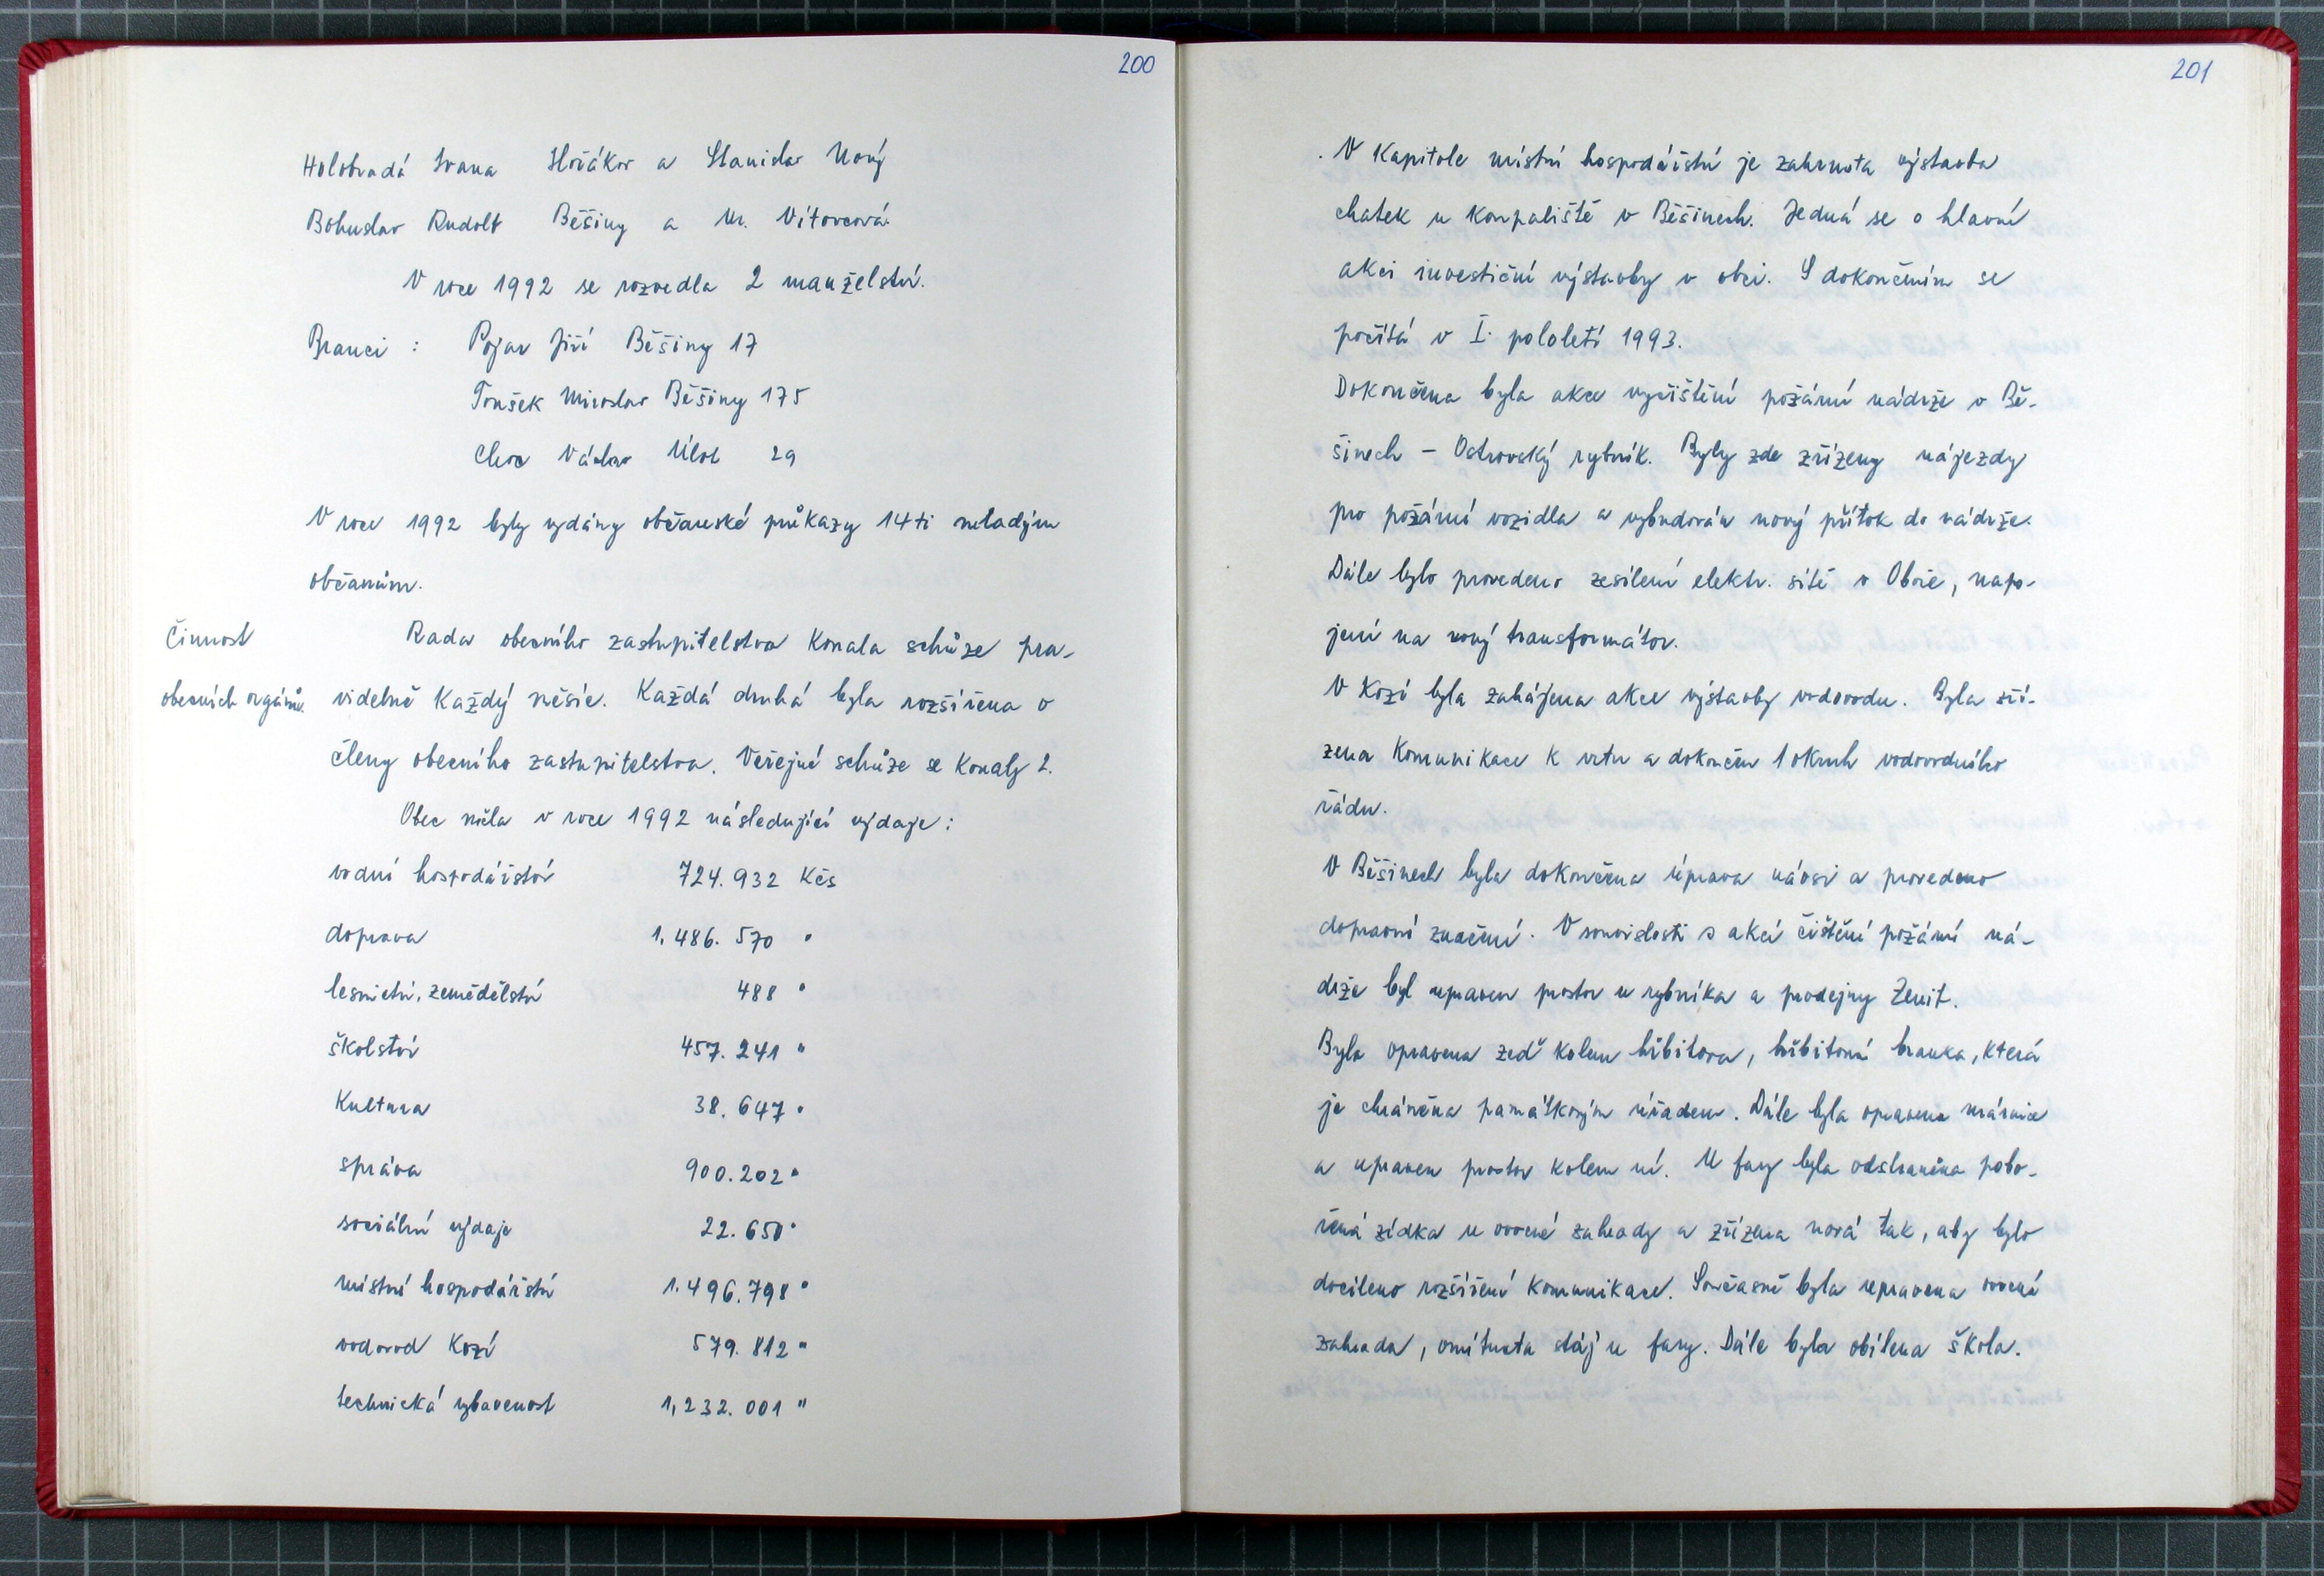 200
Holobradá Ivana Hořákov a Stanislav Nový
Bohuslav Rudolf Běšiny a M. Vítovcová.
V roce 1992 se rozvedla 2 manželství.
Branci : Pojar Jiří Běšiny 17
Toušek Miroslav Běšiny 175
Choc Václav Úloh 29
V roce 1992 byly vydány občanské průkazy 14ti mladým
občanům.
Činnost
obecních orgánů.
Rada obecního zastupitelstva konala schůze pra-
videlně každý měsíc. Každá druhá byla rozšířena o
členy obecního zastupitelstva. Veřejné schůze se konaly 2.
Obec měla v roce 1992 následující výdaje :
vodní hospodářství 724.932 Kčs
doprava 1.486.570 "
lesnictví, zemědělství 488 "
školství 457.241 "
Kultura 38.647 "
správa 900.202 "
sociální výdaje 22.650 "
místní hospodářství 1.496.798 "
vodovod Kozí 579.812 "
technická vybavenost 1,232.001 "
201
V Kapitole místní hospodářství je zahrnuta výstavba
chatek u koupaliště v Běšinech. Jedná se o hlavní
akci investiční výstavby v obci. S dokončením se
počítá v I. pololetí 1993.
Dokončena byla akce vyčištění požární nádrže v Bě-
šinech - Ostrovský rybník. Byly zde zřízeny nájezdy
pro požární vozidla a vybudován nový přítok do nádrže.
Dále bylo provedeno zesílení elektr. sítě v Oboře, napo-
jení na nový transformátor.
V Kozí byla zahájena akce výstavby vodovodu. Byla zří-
zena komunikace k vrtu a dokončen 1 okruh vodovodního
řádu.
V Běšinech byla dokončena úprava návsi a provedeno
dopravní značení. V souvislosti s akcí čištění požární ná-
drže byl upraven prostor u rybníka a prodejny Zenit.
Byla opravena zeď kolem hřbitova, hřbitovní branka, která
je chráněna památkovým úřadem. Dále byla opravena márnice
a upraven prostor kolem ní. U fary byla odstraněna pobo-
řená zídka u ovocné zahrady a zřízena nová tak, aby bylo
docíleno rozšíření komunikace. Současně byla upravena ovocná
zahrada, omítnuta stáj u fary. Dále byla obílena škola.